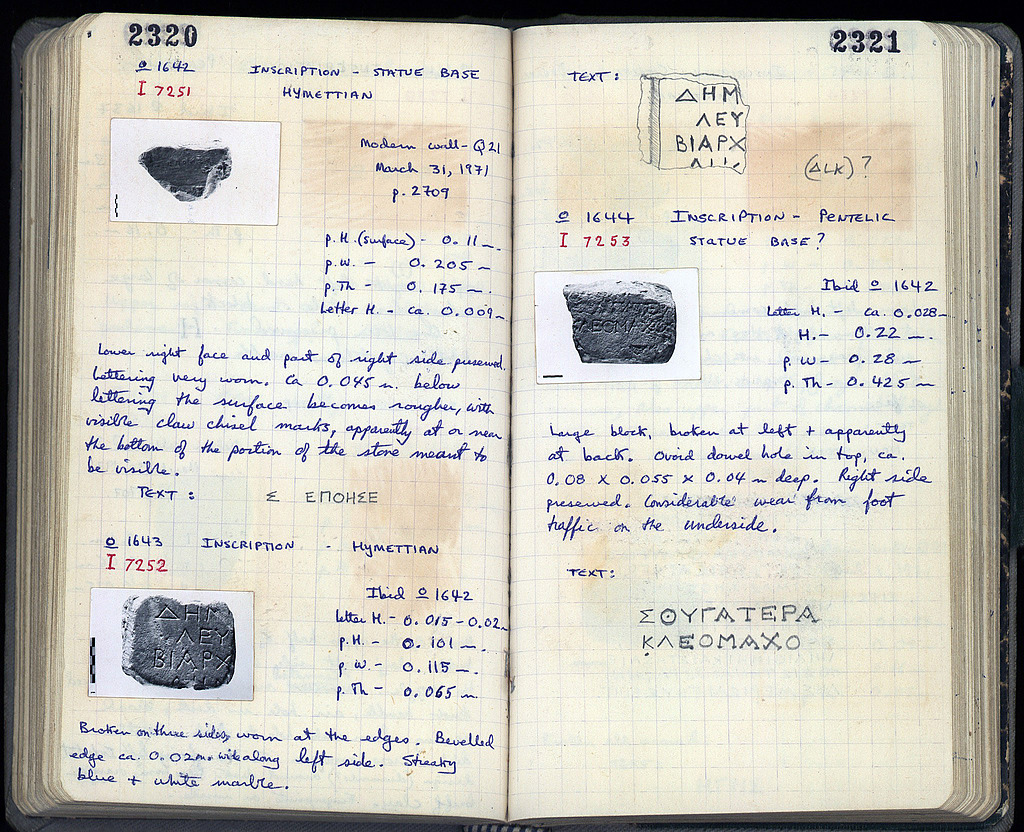 2320
O 1642 INSCRIPTION - STATUE BASE
I 7251 HYMETTIAN
Modern wall - Q21
March 31, 1971
p. 2709
p. H. (surface) - 0.11 m.
p. W. - 0.205 m
p. Th - 0.175 m.
Letter H. - ca. 0.009 m.
Lower right face and part of right side preserved.
Lettering very worn. Ca 0.045 m. below
lettering the surface becomes rougher, with
visible claw chisel marks, apparently at or near
the bottom of the portion of the stone meant to
be visible.
TEXT : Σ ΕΠΟΗΣΕ
O 1643 INSCRIPTION - HYMETTIAN
I 7252
Ibid O 1642
Letter H. - 0.015 - 0.02 m
p. H. - 0.101 m.
p. W. - 0.115 m.
p. Th - 0.065 m.
ΔΗΜ
ΛΕΥ
ΒΙΑΡΧ
Broken on three sides, worn at the edges. Bevelled
edge ca. 0.02 m. wide along left side. Streaky
blue + white marble.
2321
TEXT :
ΔΗΜ
ΛΕΥ
ΒΙΑΡΧ
(ΔLK) ?
O 1644 INSCRIPTION - PENTELIC
I 7253 STATUE BASE?
Ibid O 1642
Letter H. - ca. 0.028 m
H. - 0.22 m.
p. W - 0.28 m
p. Th - 0.425 m
ΛΕΟΜΑΧΟ
Large block, broken at left + apparently
at back. Ovoid dowel hole in top, ca.
0.08 X 0.055 x 0.04 m deep. Right side
preserved. Considerable wear from foot
traffic on the underside.
TEXT:
ΣΟΥΓΑΤΕΡΑ
ΚΛΕΟΜΑΧΟ